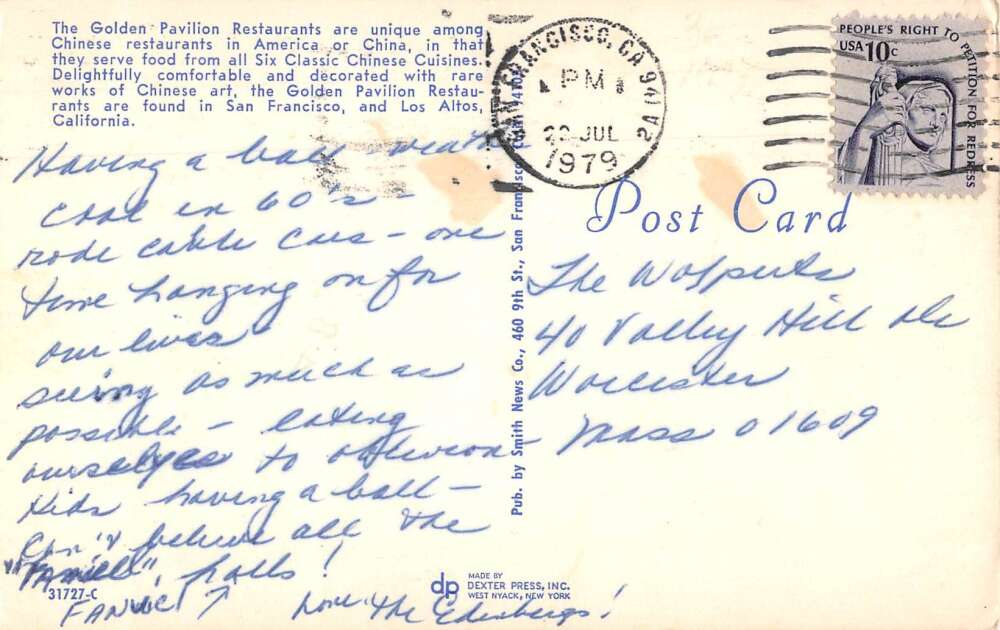 The Golden Pavilion Restaurants are unique among
Chinese restaurants in America or China, in that
they serve food from all Six Classic Chinese Cuisines.
Delightfully comfortable and decorated with rare
works of Chinese art, the Golden Pavilion Restau-
rants are found in San Francisco, and Los Altos,
California.
Having a ball - weath
cool in 60's -
rode cable cars - one
time hanging on for
our lives
seeing as much as
possible - eating
ourselves to oblivion -
Kids having a ball -
Can't believe all the
halls!
31727-C
Love, the Edenbergs!
Pub. by Smith News Co., 460 9th St., San Francisco
MADE BY
dp DEXTER PRESS, INC.
WEST NYACK, NEW YORK
SAN FRANCISCO, CA
PM
1979
PEOPLE'S RIGHT TO PETITION FOR REDRESS
USA 10c
Post Card
The Wolperts
40 Valley Hill Dr
Worcester
Mass 01609